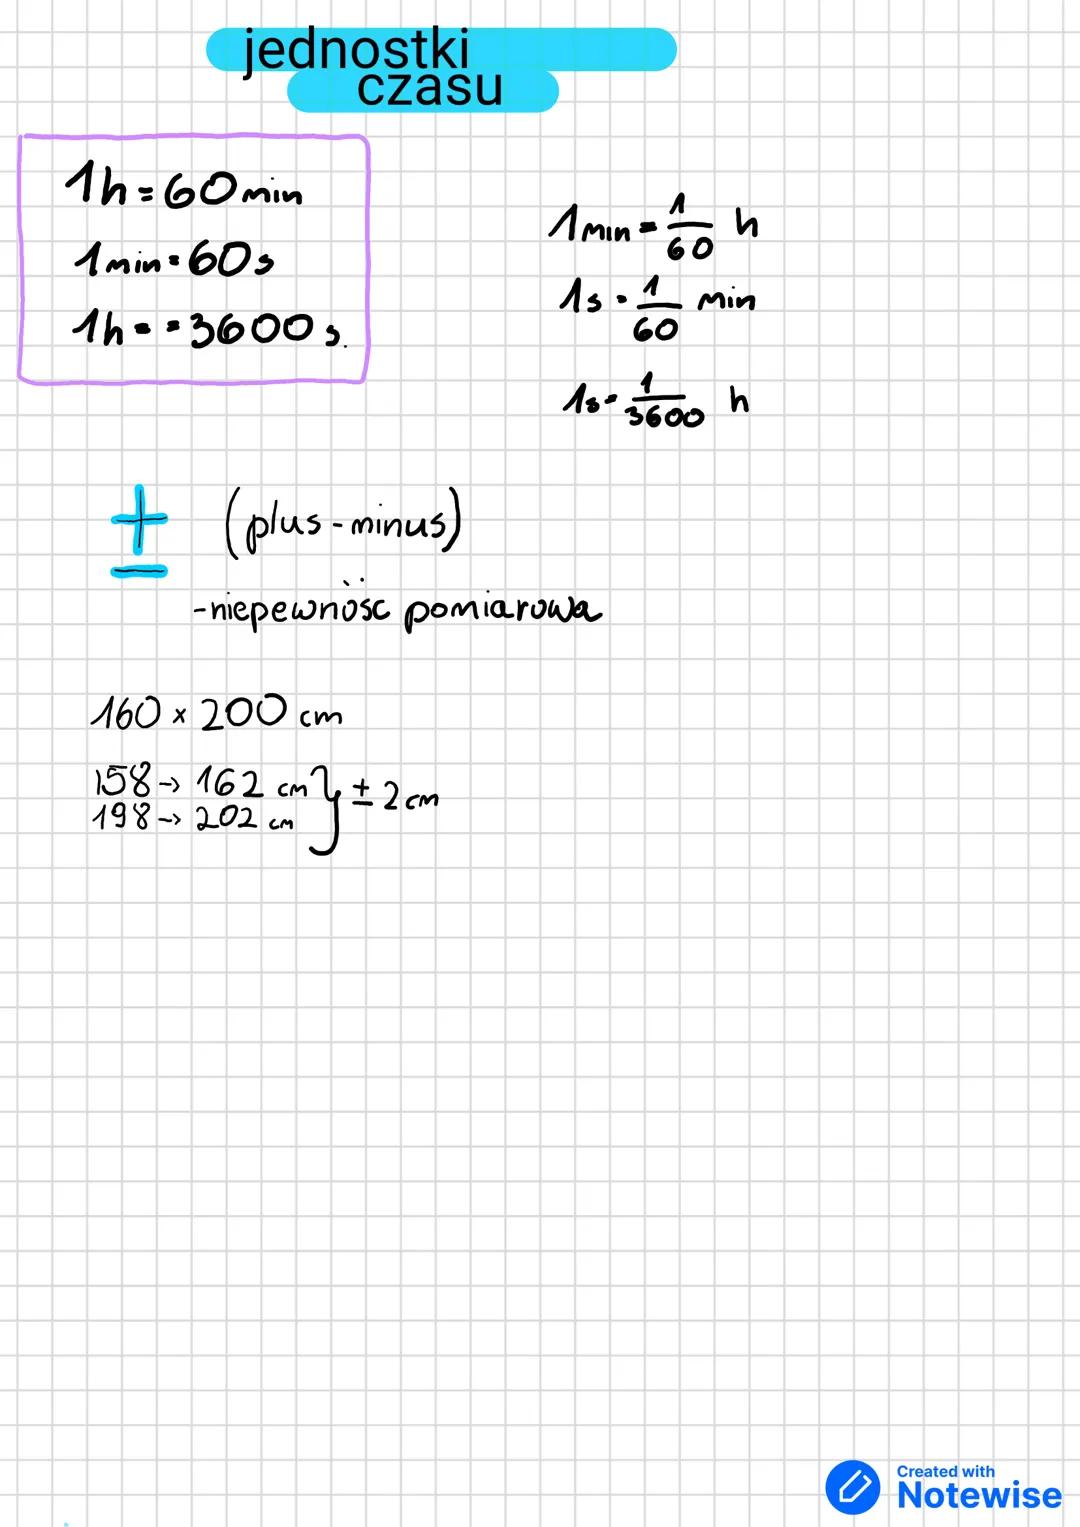 jednostki
czasu
1h=60min
1min=60s
1h= =3600 s.
1min=1/60 h
1s=1/60 min
1s=1/3600 h
± (plus-minus)
-niepewność pomiarowa
160 x 200 cm
158→ 162 cm } ± 2cm
198→ 202 cm
Created with
Notewise